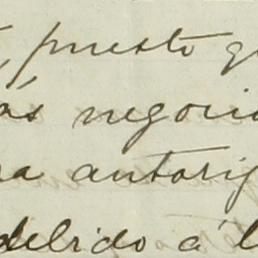 , puesto q
ás negoci
a autoriz
debido á l